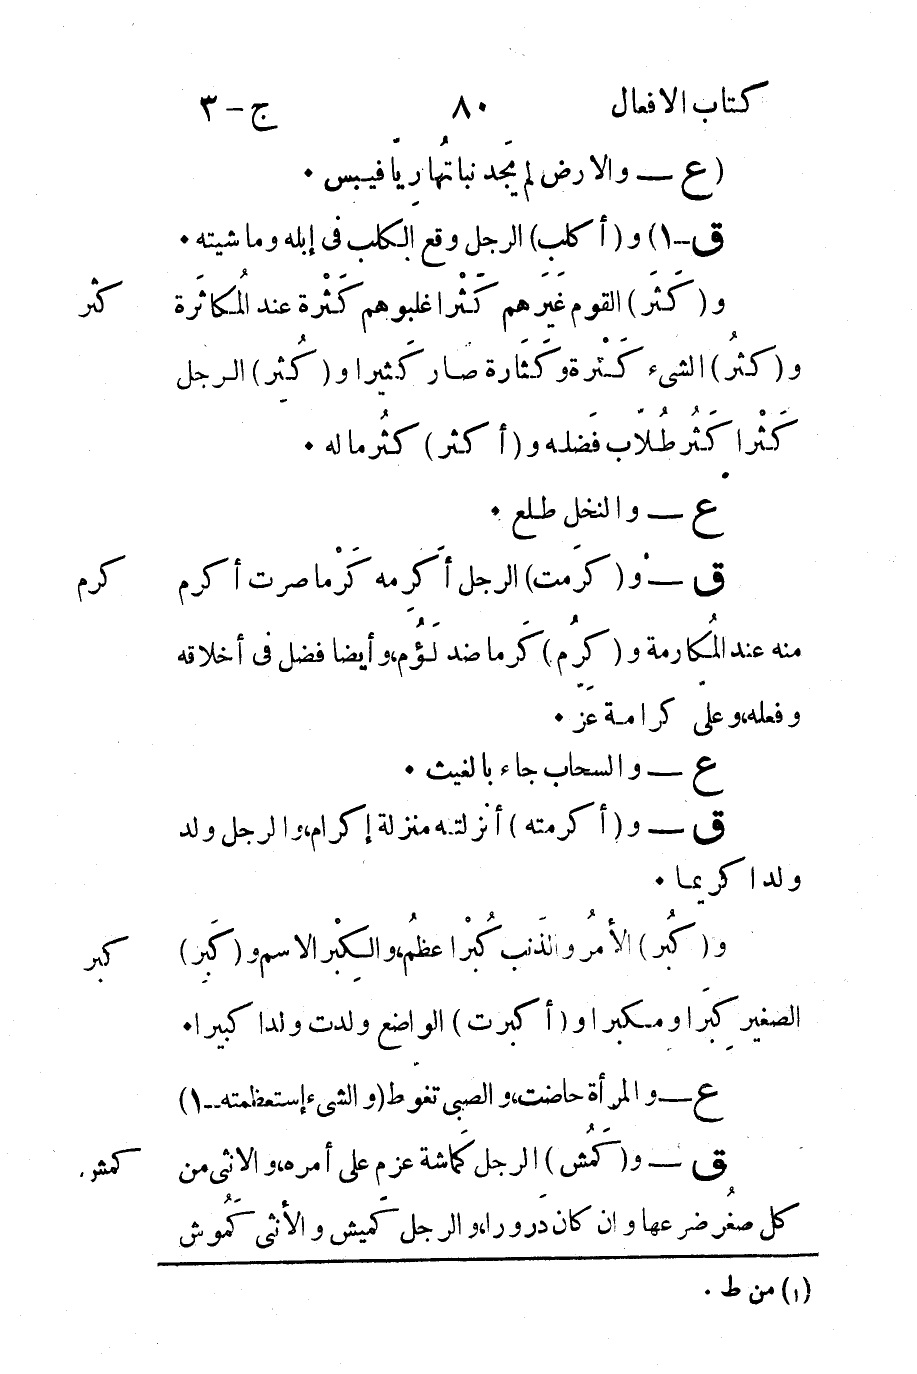 كتاب الافعال ٨٠ ج – ٣
(ع — والارض لم يَجد نباتُها رِيّا فيبس ٠
ق – ١) و (أ كلب) الرجل وقع الكلب فى إبله وماشيته ٠
و (كَثَر) القوم غيَرَهم كَثْرا غلبوهم كَثْرة عند المُكاثَرة كثر
و (كثُر) الشىء كَثْرة وكَثَارة صار كَثيرا و (كُثِر) الرجل
كَثْرا كَثُر طُلّاب فَضله و (أ كثر) كثُر ماله ٠
ع — والنخل طلع ٠
ق — و (كرَمت) الرجل أكرِمه كَرْما صرت أكرم كرم
منه عند المُكارمة و (كرُم) كَرما ضد لَؤُم، وأيضا فضل فى أخلاقه
وفعله، وعلىّ كرامة عَزّ ٠
ع — والسحاب جاء بالغيث ٠
ق — و (أ كرمته) أنزلته منزلة إكرام، والرجل ولد
ولدا كريما ٠
و (كبُر) الأمرُ والذَنب كُبْرا عظمُ، والكِبْر الاسم و (كَبِر) كبر
الصغير كِبَرا ومكبِرا و (أ كبرت) الواضع ولدت ولدا كبيرا ٠
ع — والمرأة حاضت، والصبى تغوط (والشىء إستعظمته – ١)
ق — و (كَمُش) الرجل كَماشة عزم على أمره، والانثى من كمش
كل صغُر ضرعها وان كان دَرورا، والرجل كَميش والأنثى كَمُوش
(١) من ط ٠